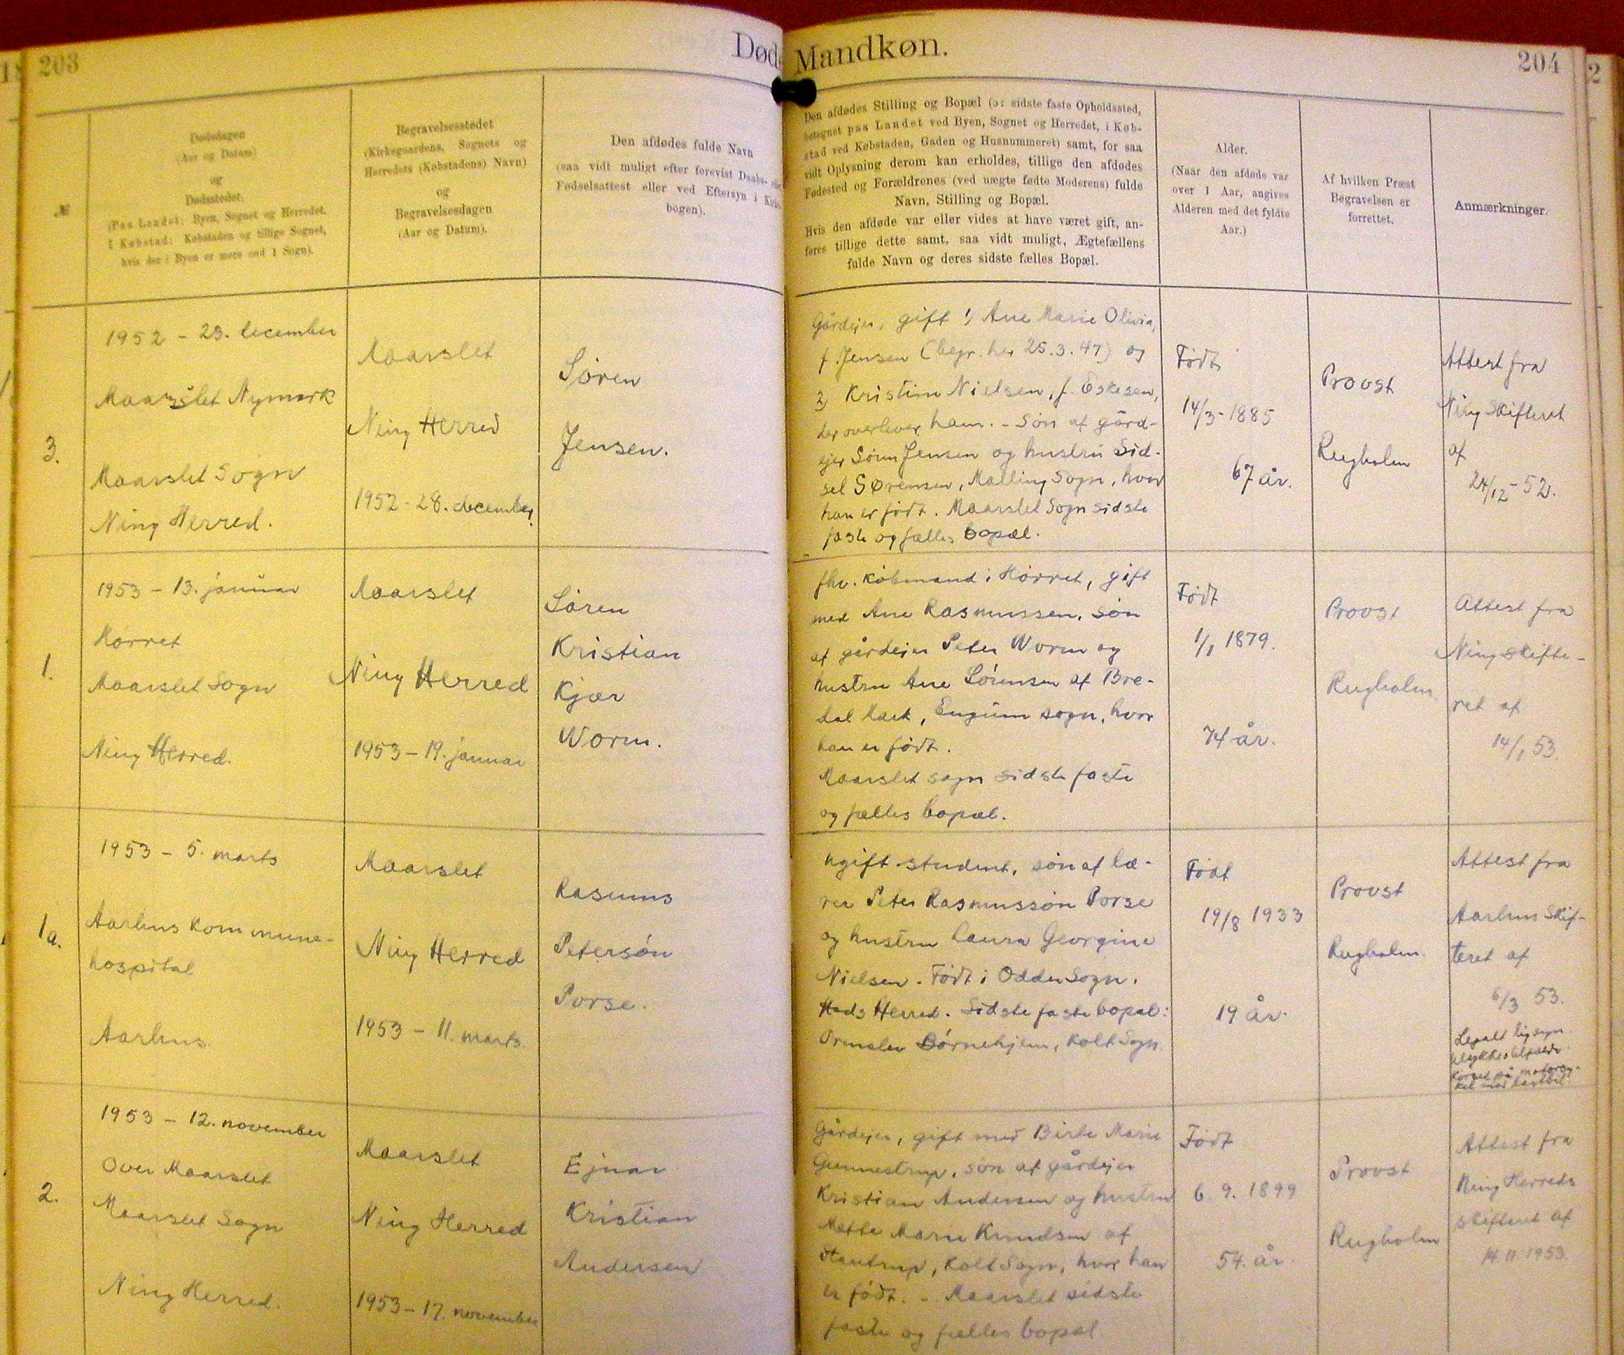 203
Døde
Mandkøn.
204
№
Dødsdagen
(Aar og Datum)
og
Dødsstedet.
(Paa Landet: Byen, Sognet og Herredet.
I Købstad: Købstaden og tillige Sognet,
hvis der i Byen er mere end 1 Sogn).
Begravelsesstedet
(Kirkegaardens, Sognets og
Herredets (Købstadens) Navn)
og
Begravelsesdagen
(Aar og Datum).
Den afdødes fulde Navn
(saa vidt muligt efter forevist Daabs- eller
Fødselsattest eller ved Eftersyn i Kirke-
bogen).
Den afdødes Stilling og Bopæl (ɔ: sidste faste Opholdssted,
betegnet paa Landet ved Byen, Sognet og Herredet, i Køb-
stad ved Købstaden, Gaden og Husnummeret) samt, for saa
vidt Oplysning derom kan erholdes, tillige den afdødes
Fødested og Forældrenes (ved uægte fødte Moderens) fulde
Navn, Stilling og Bopæl.
Hvis den afdøde var eller vides at have været gift, an-
føres tillige dette samt, saa vidt muligt, Ægtefællens
fulde Navn og deres sidste fælles Bopæl.
Alder.
(Naar den afdøde var
over 1 Aar, angives
Alderen med det fyldte
Aar.)
Af hvilken Præst
Begravelsen er
forrettet.
Anmærkninger.
3.
1952 - 23. december
Maarslet Nymark
Maarslet Sogn
Ning Herred.
Maarslet
Ning Herred
1952 - 28. december.
Søren
Jensen.
Gårdejer, gift 1) Ane Marie Olivia,
f. Jensen (begr. her 25.3.47) og
2) Kristine Nielsen, f. Eskesen,
der overlever ham. - Søn af gård-
ejer Søren Jensen og hustru Sid-
sel Sørensen, Malling Sogn, hvor
han er født. Maarslet Sogn sidste
faste og fælles bopæl.
Født
14/3 - 1885
67 år.
Provst
Rugholm
Attest fra
Ning Skifteret
af
24/12 - 52.
1.
1953 - 13. januar
Hørret
Maarslet Sogn
Ning Herred.
Maarslet
Ning Herred
1953 - 19. januar
Søren
Kristian
Kjær
Worm.
fhv. købmand i Hørret, gift
med Ane Rasmussen, søn
af gårdejer Peter Worm og
hustru Ane Sørensen af Bre-
dal Mark, Engum sogn, hvor
han er født.
Maarslet sogn sidste faste
og fælles bopæl.
Født
1/1 1879.
74 år.
Provst
Rugholm
Attest fra
Ning skifte-
ret af
14/1 53.
1a.
1953 - 5. marts
Aarhus Kommune-
hospital
Aarhus
Maarslet
Ning Herred
1953 - 11. marts
Rasmus
Petersøn
Porse.
ugift student, søn af læ-
rer Peter Rasmussøn Porse
og hustru Laura Georgine
Nielsen. Født i Odder Sogn.
Hads Herred. Sidste faste bopæl:
Ormslev Børnehjem, Kolt Sogn
Født
19/8 1933
19 år.
Provst
Rugholm.
Attest fra
Aarhus Skif-
teret af
6/3 53.
Legalt ligsyn.
2.
1953 - 12. november
Over Maarslet
Maarslet Sogn
Ning Herred.
Maarslet
Ning Herred
1953 - 17. november
Ejnar
Kristian
Andersen
Gårdejer, gift med Birte Marie
Gunnestrup, søn af gårdejer
Kristian Andersen og hustru
Mette Marie Knudsen af
Stautrup, Kolt Sogn, hvor han
er født. - Maarslet sidste
faste og fælles bopæl
Født
6. 9. 1899
54 år.
Provst
Rugholm
Attest fra
Ning Herreds
skifteret af
14.11.1953.